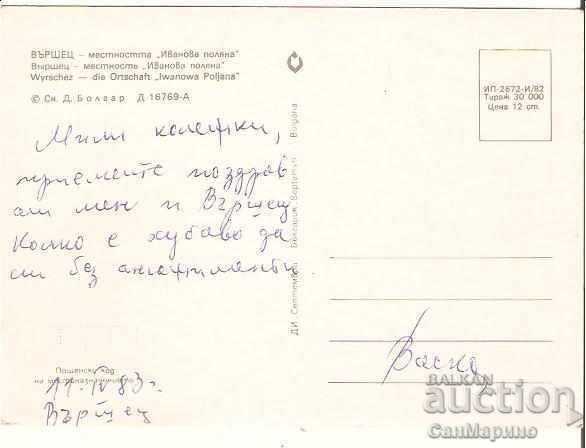 ВЪРШЕЦ – местността „Иванова поляна"
Выршец – местность „Иванова поляна"
Wyrschez – die Ortschaft „Iwanowa Poljana"
© Сн. Д. Болгар Д-16769-А
ИП-2672-И/82
Тираж 30 000
Цена 12 ст.
Мили колежки,
приемете поздрав
от мен и Вършец
Колко е хубаво да
си без ангажименти
ДИ „Септември"
Bulgaria
Васка
Пощенски код
на местоназначението
11.IV.83 г.
Вършец
BALKAN
auction
СанМарино